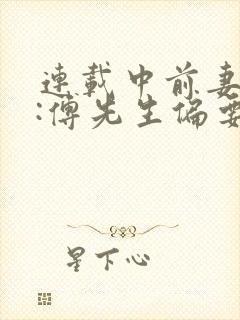 連載中前妻
:傅先生偏要
星下心